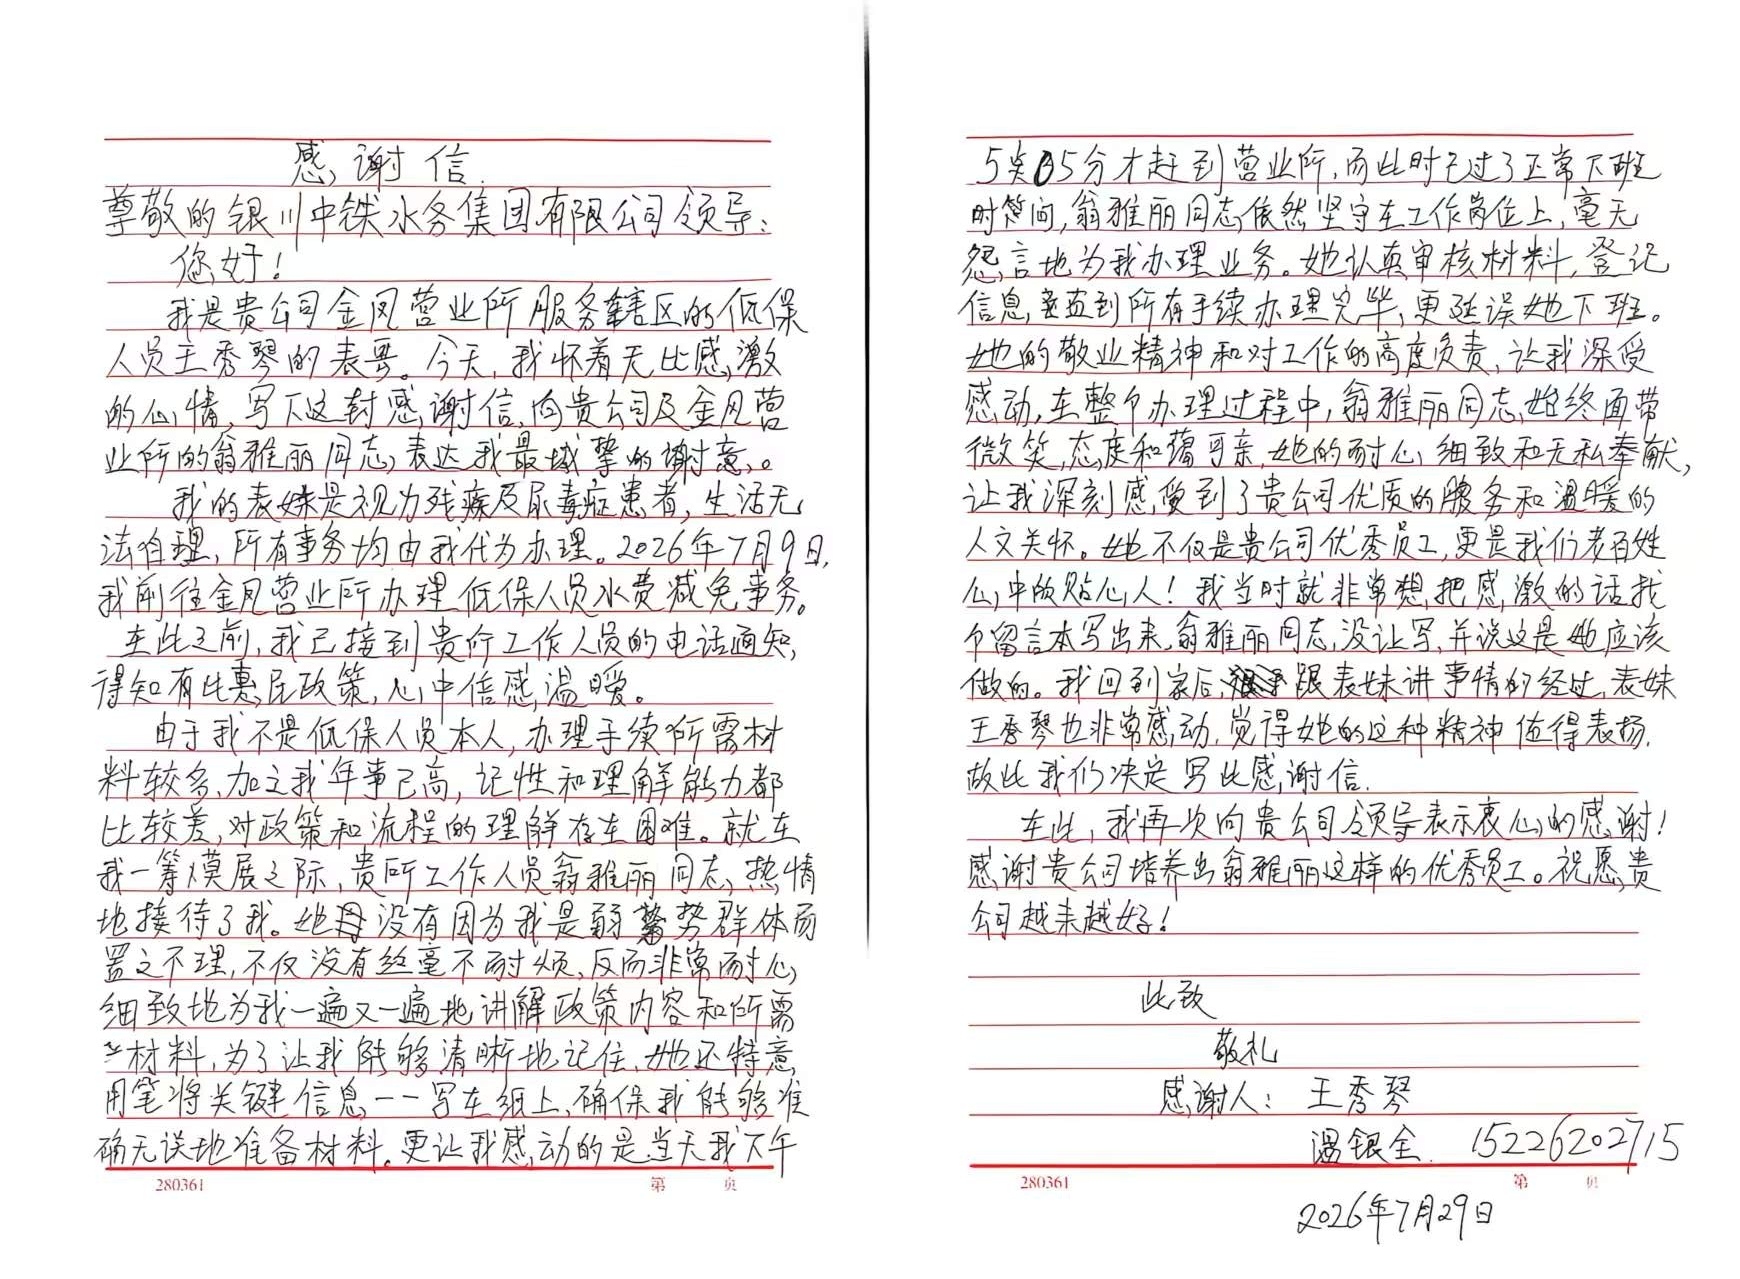 感谢信
尊敬的银川中铁水务集团有限公司领导:
您好!
我是贵公司金凤营业所服务辖区的低保
人员王秀琴的表哥。今天,我怀着无比感激
的心情,写下这封感谢信,向贵公司及金凤营
业所的翁雅丽同志,表达我最诚挚的谢意。
我的表妹是视力残疾及尿毒症患者,生活无
法自理,所有事务均由我代为办理。2026年7月9日,
我前往金凤营业所办理低保人员水费减免事务。
在此之前,我已接到贵所工作人员的电话通知,
得知有此惠民政策,心中倍感温暖。
由于我不是低保人员本人,办理手续所需材
料较多,加之我年事已高,记性和理解能力都
比较差,对政策和流程的理解存在困难。就在
我一筹莫展之际,贵所工作人员翁雅丽同志,热情
地接待了我。她没有因为我是弱势群体而
置之不理,不仅没有丝毫不耐烦,反而非常耐心,
细致地为我一遍又一遍地讲解政策内容和所需
材料,为了让我能够清晰地记住,她还特意
用笔将关键信息一一写在纸上,确保我能够准
确无误地准备材料。更让我感动的是当天我下午
5点05分才赶到营业所,而此时已过了正常下班
时间,翁雅丽同志,依然坚守在工作岗位上,毫无
怨言地为我办理业务。她认真审核材料,登记
信息,直到所有手续办理完毕,更延误她下班。
她的敬业精神和对工作的高度负责,让我深受
感动,在整个办理过程中,翁雅丽同志,始终面带
微笑,态度和蔼可亲,她的耐心,细致和无私奉献,
让我深刻感受到了贵公司优质的服务和温暖的
人文关怀。她不仅是贵公司优秀员工,更是我们老百姓
心中的贴心人!我当时就非常想,把感激的话找
个留言本写出来,翁雅丽同志,没让写,并说这是她应该
做的。我回到家后,跟表妹讲事情的经过,表妹
王秀琴也非常感动,觉得她的这种精神值得表扬,
故此我们决定写此感谢信.
在此,我再次向贵公司领导表示衷心的感谢!
感谢贵公司培养出翁雅丽这样的优秀员工。祝愿贵
公司越来越好!
此致
敬礼
感谢人:王秀琴
温银全. 15226202715
280361 第 页
280361 第 页
2026年7月29日